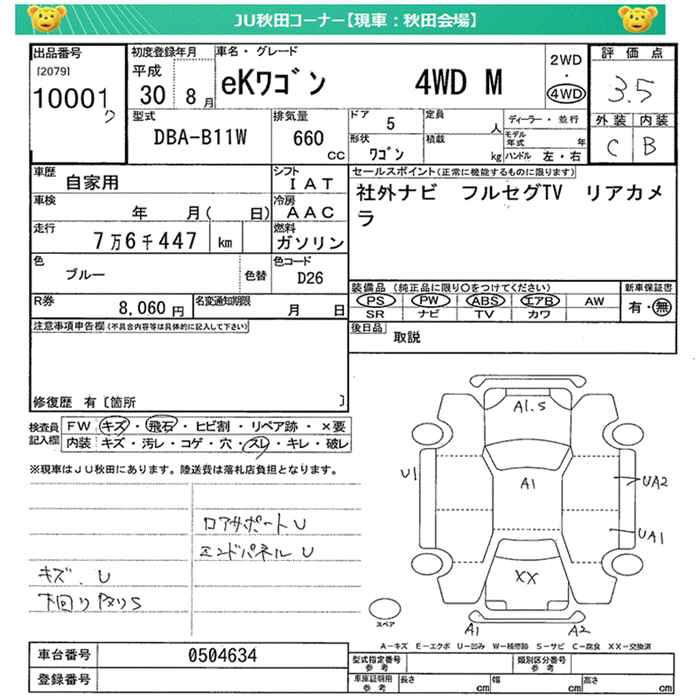 JU秋田コーナー【現車：秋田会場】
出品番号
[2079]
10001
初度登録年月
平成
30 8月
車名・グレード
eKワゴン 4WD M
2WD
・
4WD
評価点
3.5
外装 内装
C B
型式
DBA-B11W
排気量
660
CC
ドア 5
形状
ワゴン
定員
人
積載
kg
ディーラー・並行
モデル
年式 年
ハンドル 左・右
車歴 自家用
シフト
IAT
車検
年 月( 日)
冷房
AAC
走行
7万6千447 km
燃料
ガソリン
色
ブルー
色替
色コード
D26
R券
8,060円
名変通知期限
月 日
セールスポイント(正常に機能するものに限ります)
社外ナビ フルセグTV リアカメラ
装備品 (純正品に限り○をつけてください)
新車保証書
PS PW ABS エアB AW
有・無
SR ナビ TV カワ
後日品
取説
注意事項申告欄(不具合内容等は具体的に記入して下さい)
修復歴 有 [箇所 ]
検査員
記入欄
FW キズ・飛石・ヒビ割・リペア跡・×要
内装 キズ・汚レ・コゲ・穴・スレ・キレ・破レ
※現車はJU秋田にあります。陸送費は落札店負担となります。
コアサポートU
エンドパネルU
キズ.U
下回りサビS
A1.5
U1
A1
UA2
UA1
XX
スペア
A1
A2
A－キズ E－エクボ U－凹み W－補修跡 S－サビ C－腐食 XX－交換済
車台番号 0504634
登録番号
型式指定番号
参考
類別区分番号
参考
車庫証明用
参考
長さ cm
幅 cm
高さ cm